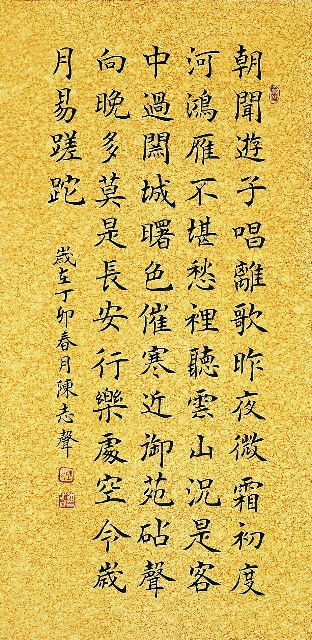 朝聞遊子唱離歌昨夜微霜初度
河鴻雁不堪愁裡聽雲山況是客
中過關城曙色催寒近御苑砧聲
向晚多莫是長安行樂處空令歲
月易蹉跎
歲在丁卯春月陳志聲